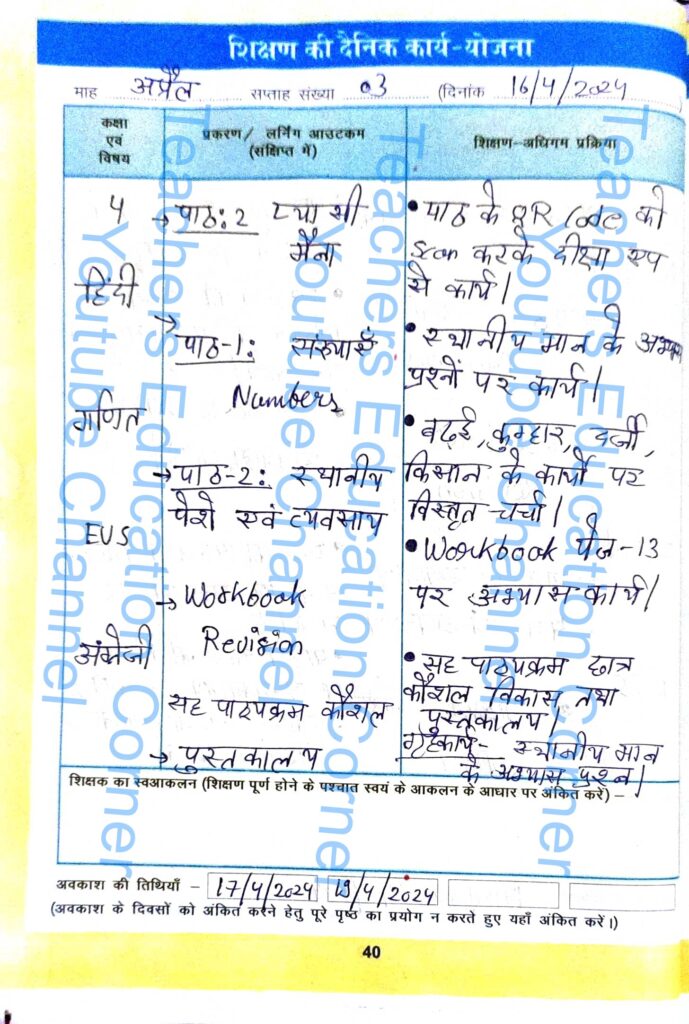 शिक्षण की दैनिक कार्य-योजना
माह अप्रैल सप्ताह संख्या 03 (दिनांक 16/4/2024)
कक्षा एवं विषय
प्रकरण/ लर्निंग आउटकम
(संक्षिप्त में)
शिक्षण-अधिगम प्रक्रिया
4
हिंदी
गणित
EVS
अंग्रेजी
→ पाठ:2 प्यासी
मैना
→ पाठ-1: संख्याएँ
Numbers
→ पाठ-2: स्थानीय
पेशे एवं व्यवसाय
→ Workbook
Revision
सह पाठ्यक्रम कौशल
→ पुस्तकालय
• पाठ के QR Code को
Scan करके दीक्षा एप
से कार्य।
• स्थानीय मान के अभ्यास
प्रश्नों पर कार्य।
• बढ़ई, कुम्हार, दर्जी,
किसान के कार्यों पर
विस्तृत चर्चा।
• Workbook पेज-13
पर अभ्यास कार्य।
• सह पाठ्यक्रम छात्र
कौशल विकास तथा
पुस्तकालय।
गृहकार्य- स्थानीय मान
के अभ्यास प्रश्न।
शिक्षक का स्वआकलन (शिक्षण पूर्ण होने के पश्चात स्वयं के आकलन के आधार पर अंकित करें) –
अवकाश की तिथियाँ – 17/4/2024 19/4/2024
(अवकाश के दिवसों को अंकित करने हेतु पूरे पृष्ठ का प्रयोग न करते हुए यहाँ अंकित करें।)
40
Teachers Education Corner
Youtube Channel
Teachers Education Corner
Youtube Channel
Teachers Education Corner
Youtube Channel